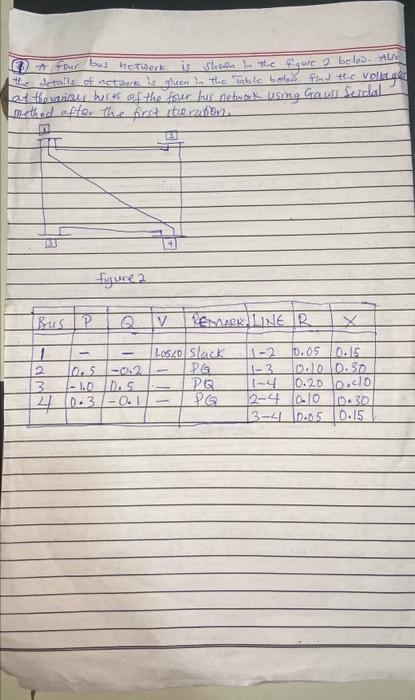 A four bus network is shown in the figure 2 below. Also
the details of network is given in the Table below. Find the voltages
at the various buses of the four bus network using Gauss Seidal
method after the first iteration.
1 2
3 4
figure 2
Bus P Q V REMARK LINE R X
1 - - 1.05∠0 Slack 1-2 0.05 0.15
2 0.5 -0.2 - PQ 1-3 0.10 0.30
3 -1.0 0.5 - PQ 1-4 0.20 0.40
4 0.3 -0.1 - PQ 2-4 0.10 0.30
3-4 0.05 0.15